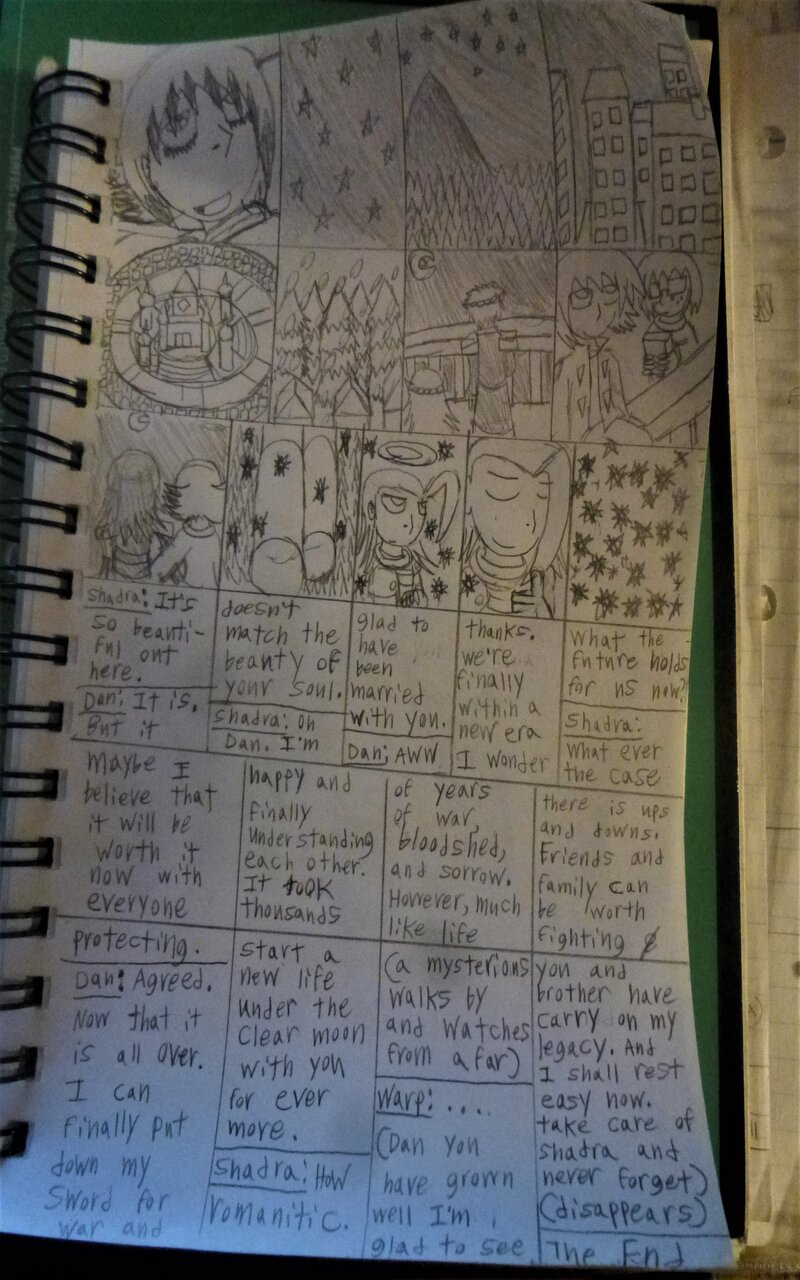 Shadra: It's
so beauti-
ful out
here.
Dan: It is.
But it
doesn't
match the
beauty of
your soul.
Shadra: Oh
Dan. I'm
glad to
have
been
married
with you.
Dan: AWW
thanks.
we're
finally
within a
new era
I wonder
what the
future holds
for us now?
Shadra:
what ever
the case
maybe I
believe that
it will be
worth it
now with
everyone
happy and
finally
understanding
each other.
It took
thousands
of years
of war,
bloodshed,
and sorrow.
However, much
like life
there is ups
and downs.
Friends and
family can
be worth
fighting
protecting.
Dan: Agreed.
Now that it
is all over.
I can
finally put
down my
sword for
war and
start a
new life
under the
clear moon
with you
for ever
more.
Shadra: How
romanitic.
(a mysterious
walks by
and watches
from afar)
Warp: ....
(Dan you
have grown
well I'm
glad to see
you and
brother have
carry on my
legacy. And
I shall rest
easy now.
take care of
shadra and
never forget)
(disappears)
The End